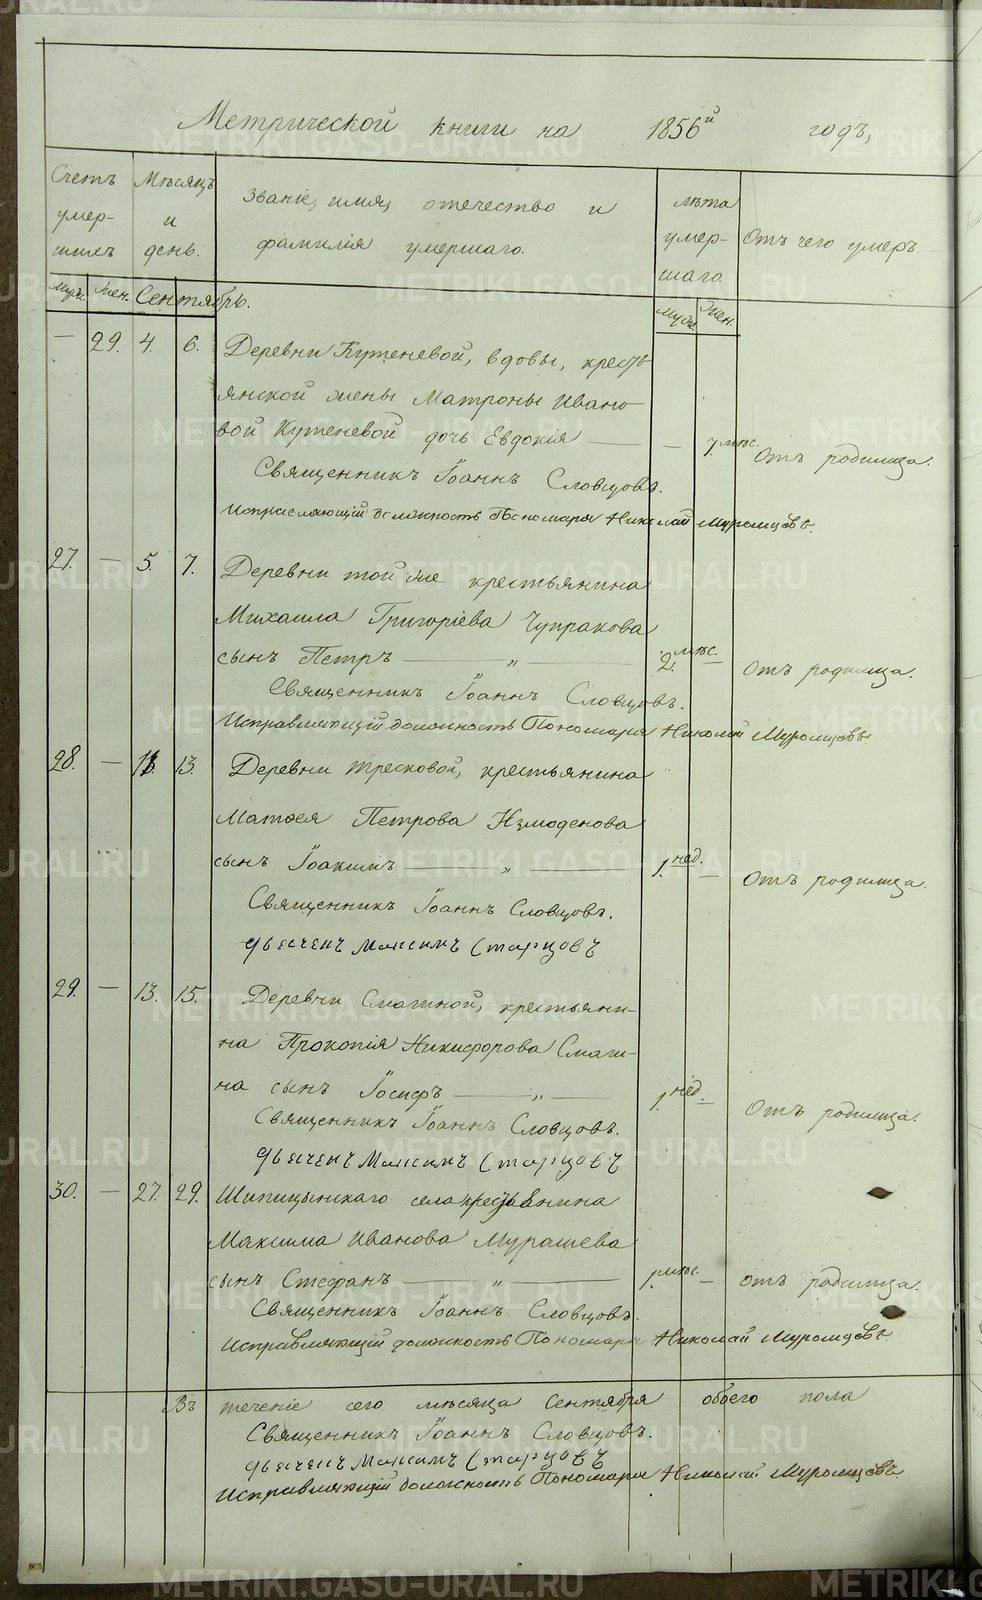 Метрической книги на 1856й годъ,
Счетъ умер- шихъ
Мѣсяцъ и день.
Званіе, имя, отечество и фамилія умершаго.
лѣта умер- шаго.
Отъ чего умеръ
Муж. Жен. Сентябрь.
Муж. Жен.
— 29. 4. 6. Деревни Кутеневой, вдовы, кресть
янской жены Матроны Ивано
вой Кутеневой дочь Евдокія — — 7. мѣс. Отъ родимца.
Священникъ Іоаннъ Словцовъ.
Исправляющій должность Пономаря Николай Муромцовъ.
27. — 5. 7. Деревни той же крестьянина
Михаила Григоріева Чупракова
сынъ Петръ — „ — 2. мѣс. — Отъ родимца.
Священникъ Іоаннъ Словцовъ.
Исправляющій должность Пономаря Николай Муромцовъ
28. — 11. 13. Деревни Тресковой, крестьянина
Матѳея Петрова Измоденова
сынъ Іоакимъ — „ — 1. нед. — Отъ родимца.
Священникъ Іоаннъ Словцовъ.
дьяченъ Максимъ Старцовъ
29. — 13. 15. Деревни Смагиной, крестьяни-
на Прокопія Никифорова Смаги-
на сынъ Іосифъ — „ — 1. нед. — Отъ родимца.
Священникъ Іоаннъ Словцовъ.
дьяченъ Максимъ Старцовъ
30. — 27. 29. Шипицынскаго села крестьянина
Максима Иванова Мурашева
сынъ Стефанъ — „ — 1. мѣс. — отъ родимца.
Священникъ Іоаннъ Словцовъ.
Исправляющій должность Пономаря Николай Муромцовъ
Въ теченіе сего мѣсяца Сентября обоего пола
Священникъ Іоаннъ Словцовъ.
дьяченъ Максимъ Старцовъ
Исправляющій должность Пономаря Николай Муромцовъ
METRIKI.GASO-URAL.RU